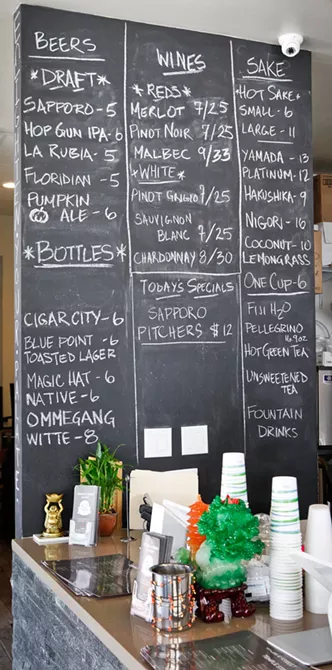 BEERS
*DRAFT*
SAPPORO - 5
HOP GUN IPA - 6
LA RUBIA - 5
FLORIDIAN - 5
PUMPKIN
ALE - 6
*BOTTLES*
CIGAR CITY - 6
BLUE POINT - 6
TOASTED LAGER
MAGIC HAT - 6
NATIVE - 6
OMMEGANG
WITTE - 8
WINES
*REDS*
MERLOT 7/25
PINOT NOIR 7/25
MALBEC 9/33
*WHITE*
PINOT GRIGIO 7/25
SAUVIGNON
BLANC 7/25
CHARDONNAY 8/30
TODAY'S SPECIALS
SAPPORO
PITCHERS $12
SAKE
*HOT SAKE*
SMALL - 6
LARGE - 11
YAMADA - 13
PLATINUM - 12
HAKUSHIKA - 9
NIGORI - 16
COCONUT - 10
LEMONGRASS
ONE CUP - 6
FIJI H2O
PELLEGRINO
16.9oz
HOT GREEN TEA
UNSWEETENED
TEA
FOUNTAIN
DRINKS